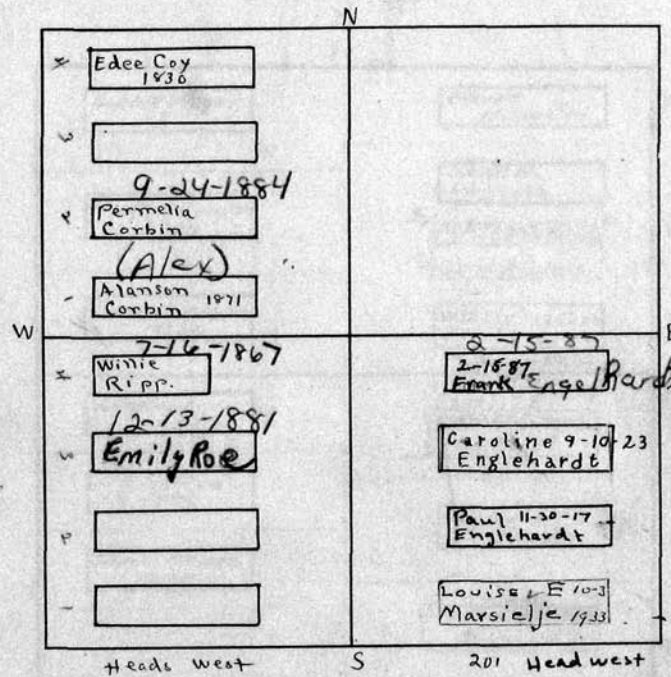 N
Edee Coy
1830
9-24-1884
Permelia
Corbin
(Alex)
Alanson
Corbin 1871
W
E
7-16-1867
Willie
Ripp.
12-13-1881
Emily Roe
2-15-87
2-15-87
Frank Engelhardt
Caroline 9-10-23
Englehardt
Paul 11-30-17
Englehardt
Louise E 10-3
Marsielje 1933
Heads West
S
201 Head west